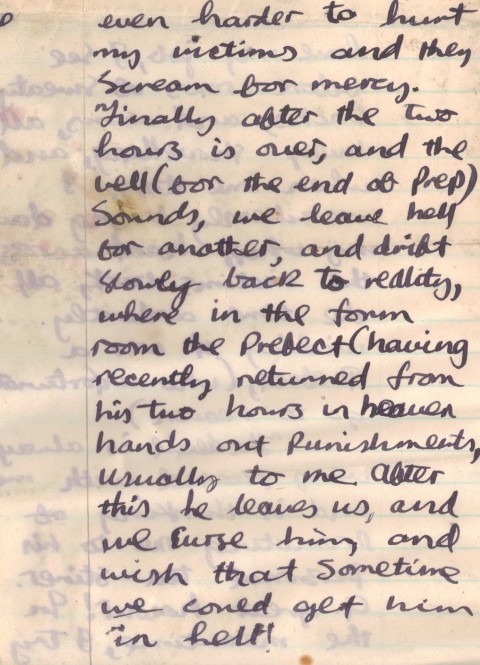 even harder to hunt
my victims and they
scream for mercy.
Finally after the two
hours is over, and the
vell (for the end of Prep)
Sounds, we leave hell
for another, and drift
slowly back to reality,
where in the form
room the Prefect (having
recently returned from
his two hours in heaven
hands out Punishments,
usually to me. After
this he leaves us, and
we curse him, and
wish that Sometime
we could get him
"in hell"!